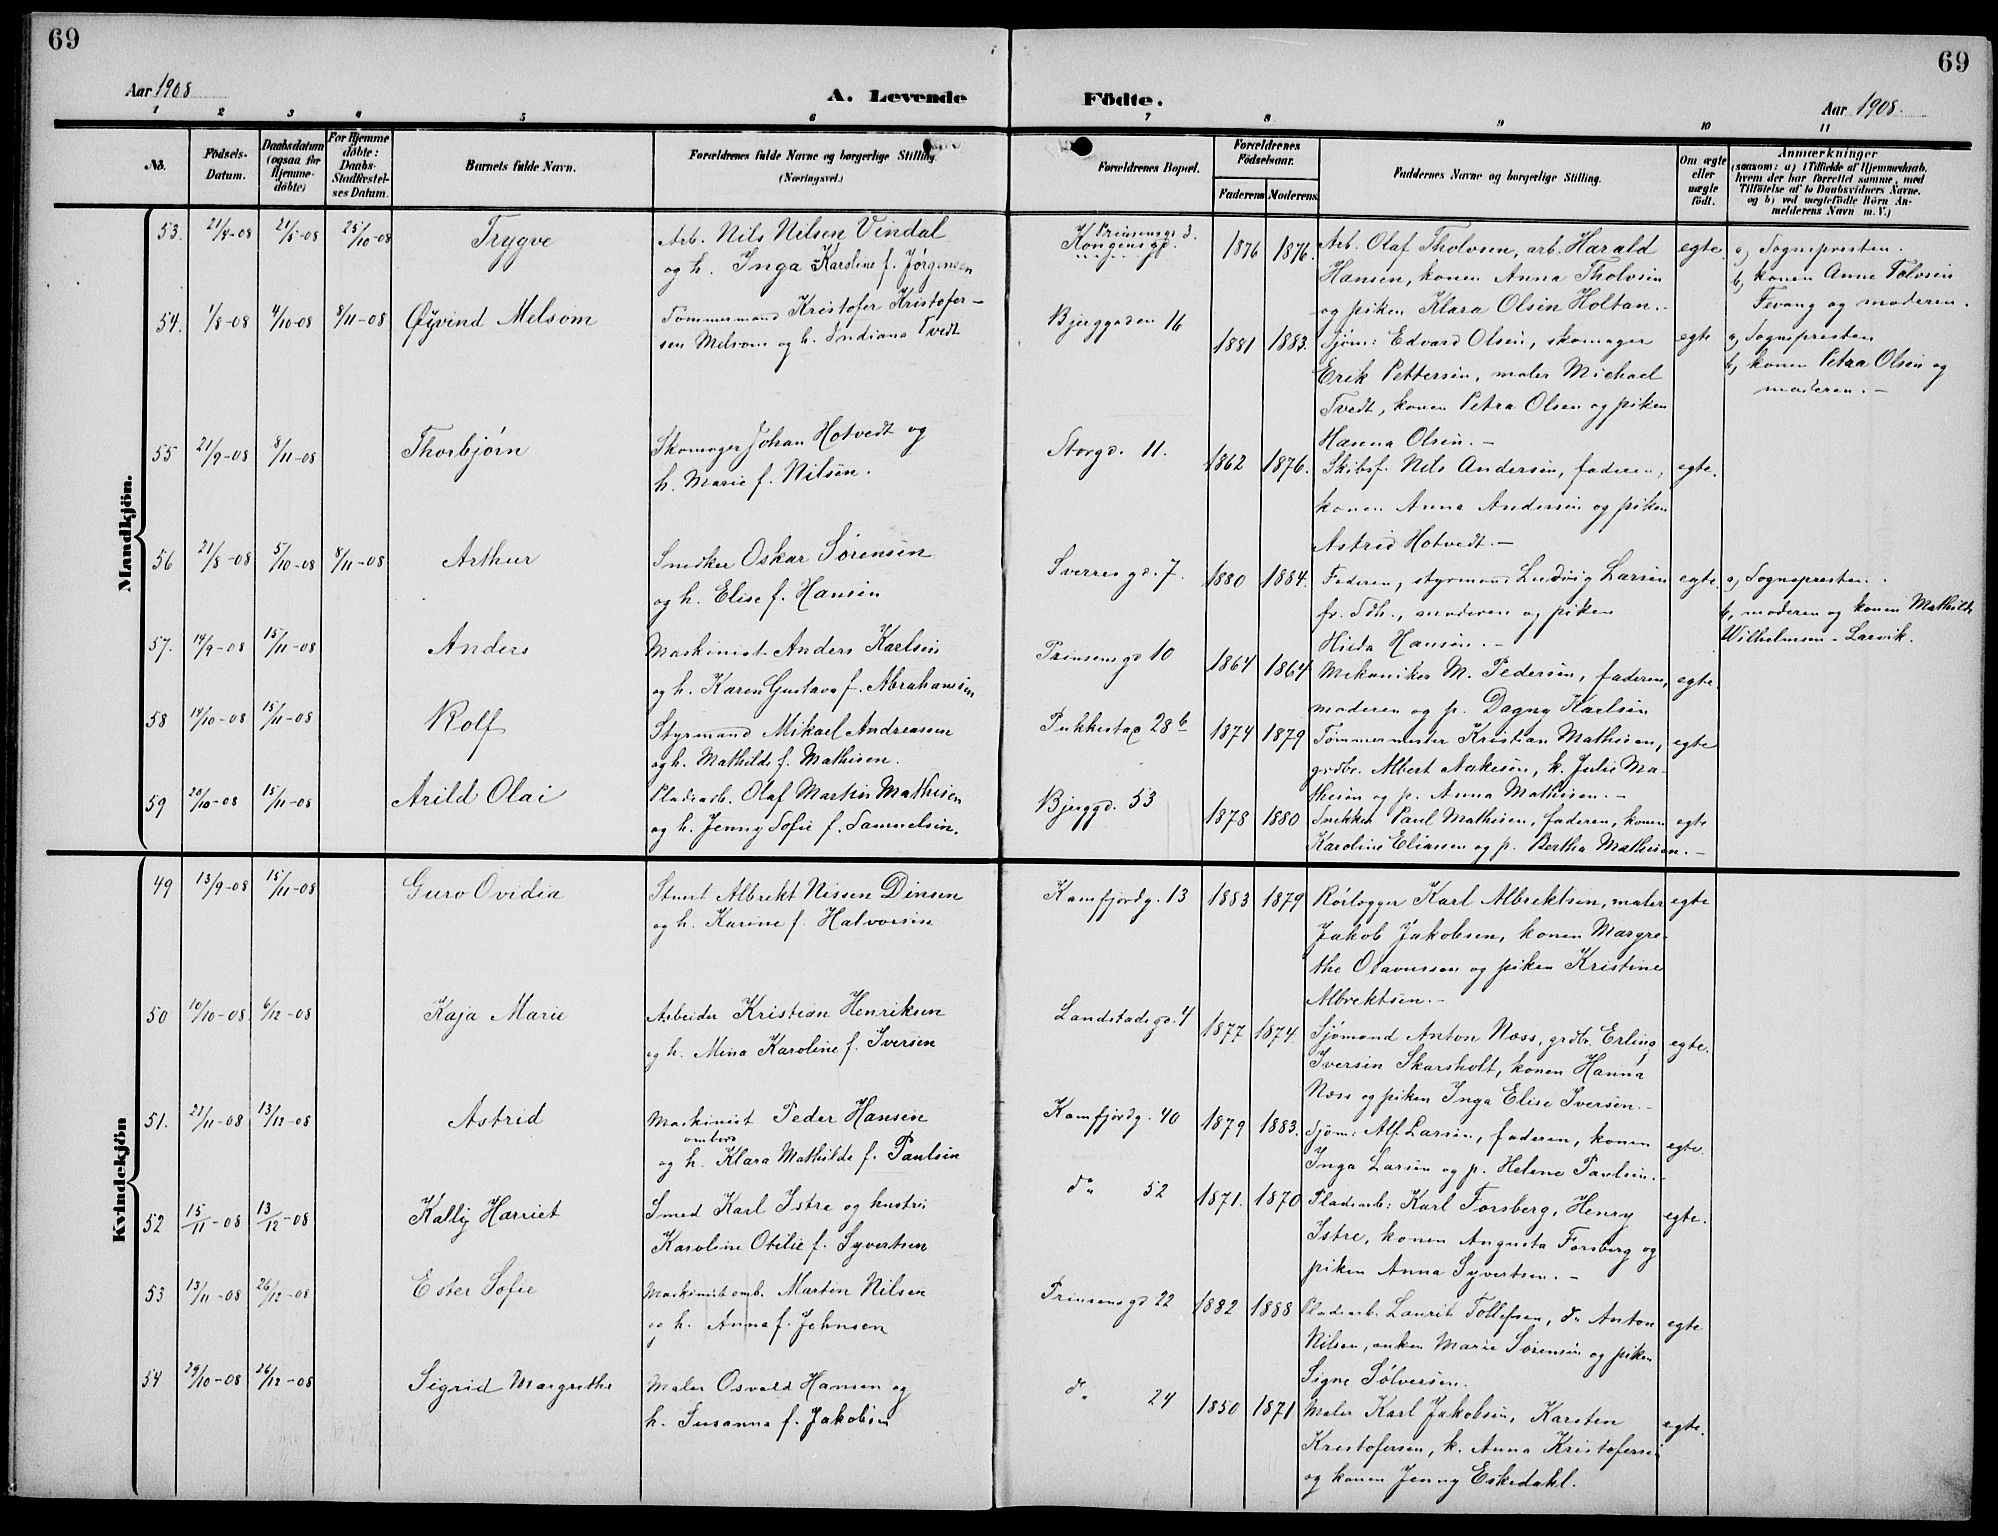 69
69
Aar 1908
A. Levende
Födte.
Aar 1908.
1 2 3 4 5 6 7 8 9 10 11
No.
Födsels-
Datum.
Daabsdatum
(ogsaa for
Hjemme-
döbte)
For Hjemme
döbte:
Daabs-
Stadfæstel-
ses Datum.
Barnets fulde Navn.
Forældrenes fulde Navne og borgerlige Stilling
(Næringsvei.)
Forældrenes Bopæl.
Forældrenes
Födselsaar.
Faderens Moderens
Faddernes Navne og borgerlige Stilling.
Om ægte
eller
uægte
födt.
Anmærkninger
(saasom: a) i Tilfælde af Hjemmedaab,
hvem der har forrettet samme, med
Tilföielse af to Daabsvidners Navne,
og b) ved uægtefödte Börn An-
melderens Navn m. V.)
Mandkjön.
53. 21/8-08 21/5-08 25/10-08 Trygve
Arb. Nils Nilsen Vindal
og h. Inga Karoline f. Jørgensen
Prinsensgd.
Kongensgd.
1876 1876.
Arb. Olaf Tholvsen, arb. Harald
Hansen, konen Anna Tholvsen
og piken Klara Olsen Holtan.-
egte.
a, Sognepresten.
b, konen Anne Tolvsen
Fevang og moderen.
54. 1/8-08 4/10-08 8/11-08 Øyvind Melsom
Tømmermand Kristofer Kristofer-
sen Melsom og h. Indiana Tvedt
Bjerggaden 16
1881 1883.
Sjøm: Edvard Olsen, skomager
Erik Pettersen, maler Michael
Tvedt, konen Petra Olsen og piken
Hanna Olsen.-
egte
a, Sognepresten
b, konen Petra Olsen og
moderen.-
55 21/9-08 8/11-08 Thorbjørn
Skomager Johan Hotvedt og
h. Marie f. Nilsen.
Storgd. 11.
1862 1876.
Skibsf. Nils Andersen, faderen,
konen Anna Andersen og piken
Astrid Hotvedt.-
egte.
56 21/8-08 5/10-08 8/11-08 Arthur
Snedker Oskar Sørensen
og h. Elise f. Hansen
Sverresgd. 7.
1880 1884.
Faderen, styrmand Ludvig Larsen
fr. Sdh., moderen og piken
Hilda Hansen.-
egte.
a, Sognepresten.
b, moderen og konen Mathilde
Wilhelmsen-Larvik.
57. 14/9-08 15/11-08 Anders
Maskinist Anders Karlsen
og h. Karen Gustava f. Abrahamsen
Prinsensgd 10
1864 1864
Mekaniker M. Pedersen, faderen,
moderen og p. Dagny Karlsen
egte.
58 14/10-08 15/11-08 Rolf
Styrmand Mikael Andreassen
og h. Mathilde f. Mathisen.
Pukkestad 28 b
1874 1879
Tømmermester Kristian Mathisen,
grdbr. Albert Aakesen, k. Julie Ma-
thisen og p. Anna Mathisen.-
egte
59 20/10-08 15/11-08 Arild Olai
Pladsarb. Olaf Martin Mathisen
og h. Jenny Sofie f. Samuelsen.
Bjerggd. 53
1878 1880
Snekker Paul Mathisen, faderen, konen
Karoline Eliassen og p. Bertha Mathisen.-
egte
Kvindekjön
49 13/9-08 15/11-08 Guro Ovidia
Stuert Albrekt Nissen Dinsen
og h. Karine f. Halvorsen
Kamfjordg. 13
1883 1879
Rørlægger Karl Albrektsen, maler
Jakob Jakobsen, konen Margre-
the Olavussen og piken Kristine
Albrektsen.-
egte
50 10/10-08 6/12-08 Kaja Marie
Arbeider Kristian Henriksen
og h. Mina Karoline f. Iversen
Landstadsgd. 4
1877 1874.
Sjømand Anton Næss, grdbr. Erling
Iversen Skarsholt, konen Hanna
Næss og piken Inga Elise Iversen.-
egte.
51. 21/11-08 13/12-08 Astrid
Maskinist Peder Hansen
ombord
og h. Klara Mathilde f. Paulsen
Kamfjordg. 40
1879 1883.
Sjøm: Alf Larsen, faderen, konen
Inga Larsen og p. Helene Paulsen.-
egte.
52 15/11-08 13/12-08 Kally Harriet
Smed Karl Istre og hustru
Karoline Otilie f. Syvertsen
do 52
1871. 1870
Pladsarb: Karl Forsberg, Henry
Istre, konen Augusta Forsberg og
piken Anna Syvertsen.-
egte.
53 13/11-08 26/12-08 Ester Sofie
Maskinist omb. Martin Nilsen
og h. Anna f. Johnsen
Prinsensgd 22
1882 1888
Pladsarb. Laurit Tollefsen, do Anton
Nilsen, enken Marie Sørensen og piken
Signe Sølversen.
egte
54 29/10-08 26/12-08 Sigrid Margrethe
Maler Osvald Hansen og
h. Susanna f. Jakobsen
do 24
1850 1871
Maler Karl Jakobsen, Karsten
Kristofersen, k. Anna Kristofersen
og konen Jenny Eskedahl.
egte.